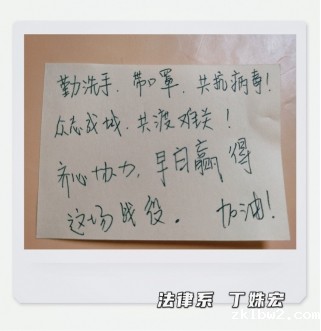 勤洗手．带口罩．共抗病毒！
众志成城．共渡难关！
齐心协力，早日赢得
这场战役。 加油！
法律系 丁姝宏
zklbw2.com